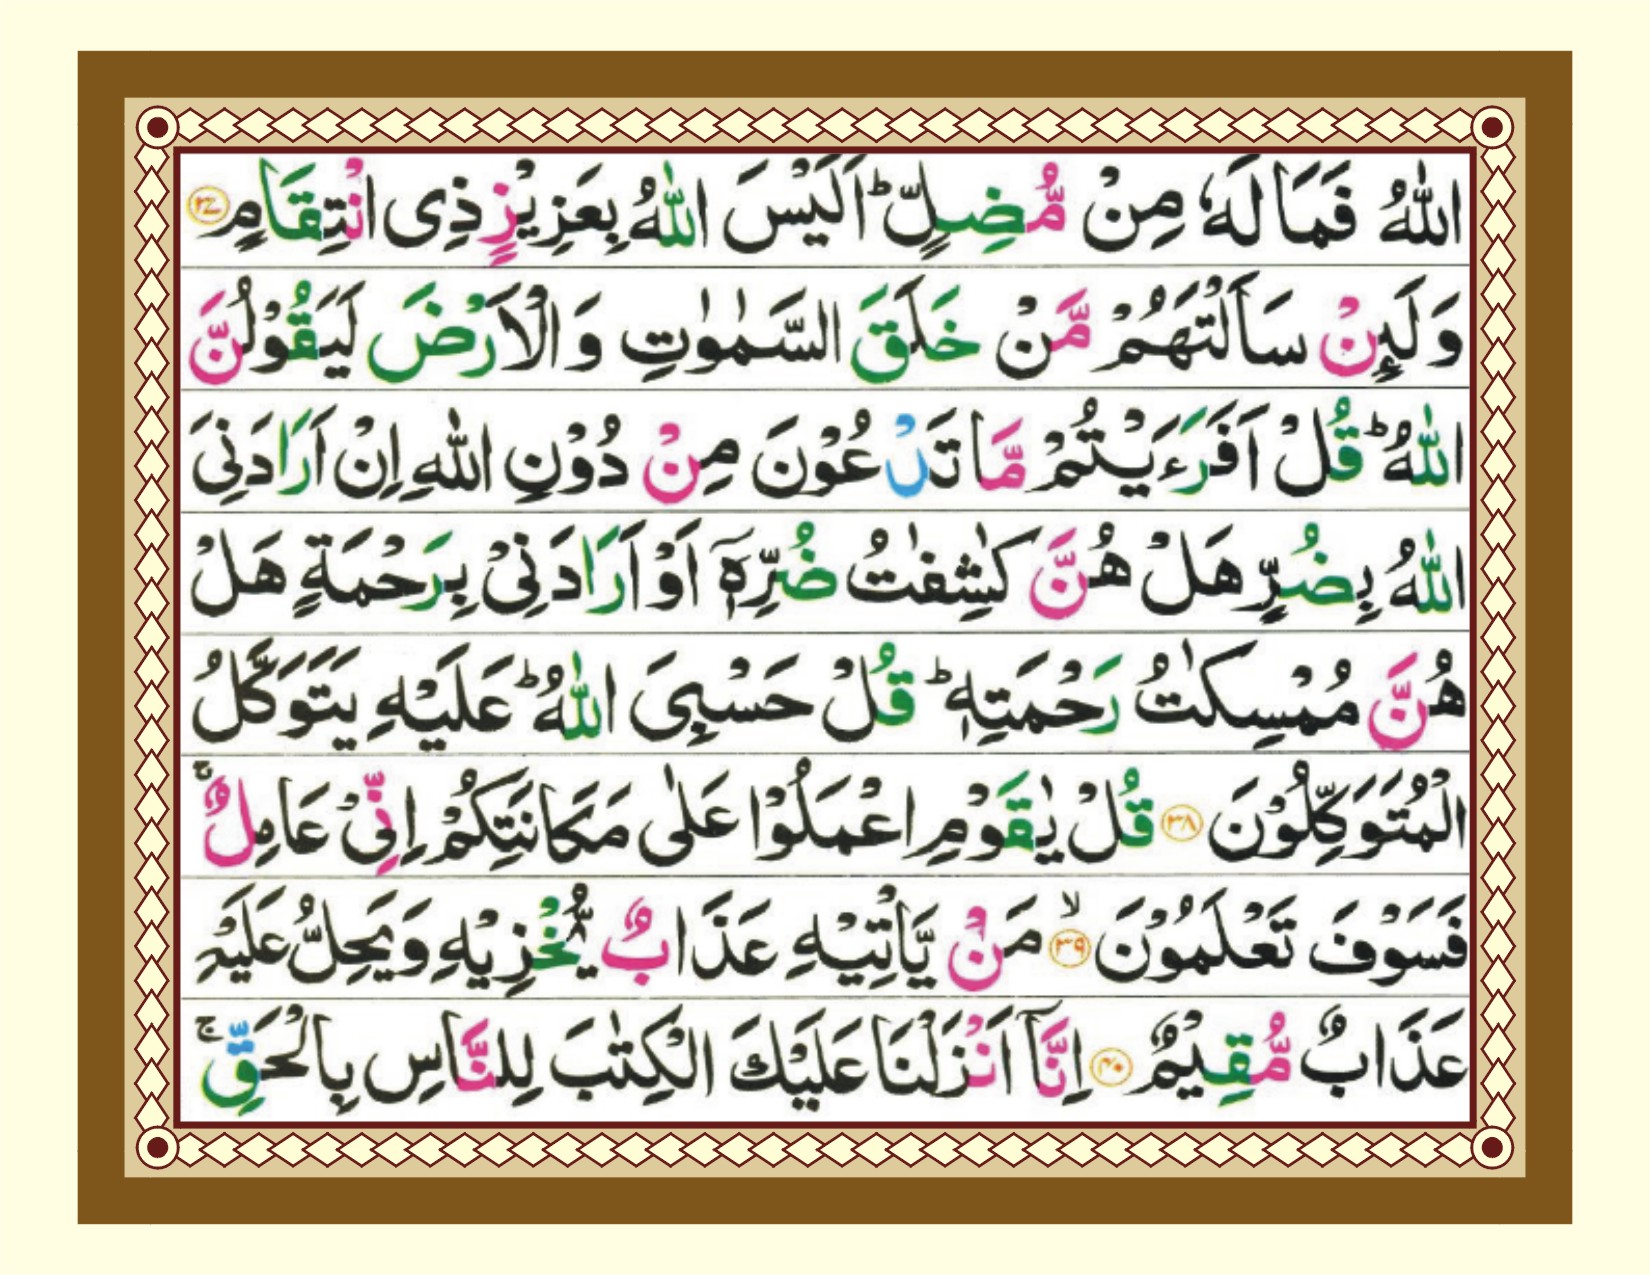 اللّٰهُ فَمَا لَهٗ مِنْ مُّضِلٍّ ؕ اَلَيْسَ اللّٰهُ بِعَزِيْزٍ ذِى انْتِقَامٍ ۳۷
وَلَئِنْ سَاَلْتَهُمْ مَّنْ خَلَقَ السَّمٰوٰتِ وَالْاَرْضَ لَيَقُوْلُنَّ
اللّٰهُ ؕ قُلْ اَفَرَءَيْتُمْ مَّا تَدْعُوْنَ مِنْ دُوْنِ اللّٰهِ اِنْ اَرَادَنِىَ
اللّٰهُ بِضُرٍّ هَلْ هُنَّ كٰشِفٰتُ ضُرِّهٖٓ اَوْ اَرَادَنِىْ بِرَحْمَةٍ هَلْ
هُنَّ مُمْسِكٰتُ رَحْمَتِهٖ ؕ قُلْ حَسْبِىَ اللّٰهُ ؕ عَلَيْهِ يَتَوَكَّلُ
الْمُتَوَكِّلُوْنَ ۳۸ قُلْ يٰقَوْمِ اعْمَلُوْا عَلٰى مَكَانَتِكُمْ اِنِّىْ عَامِلٌ ۚ
فَسَوْفَ تَعْلَمُوْنَ ۙ ۳۹ مَنْ يَّاْتِيْهِ عَذَابٌ يُّخْزِيْهِ وَيَحِلُّ عَلَيْهِ
عَذَابٌ مُّقِيْمٌ ۴۰ اِنَّاۤ اَنْزَلْنَا عَلَيْكَ الْكِتٰبَ لِلنَّاسِ بِالْحَقِّ ۚ